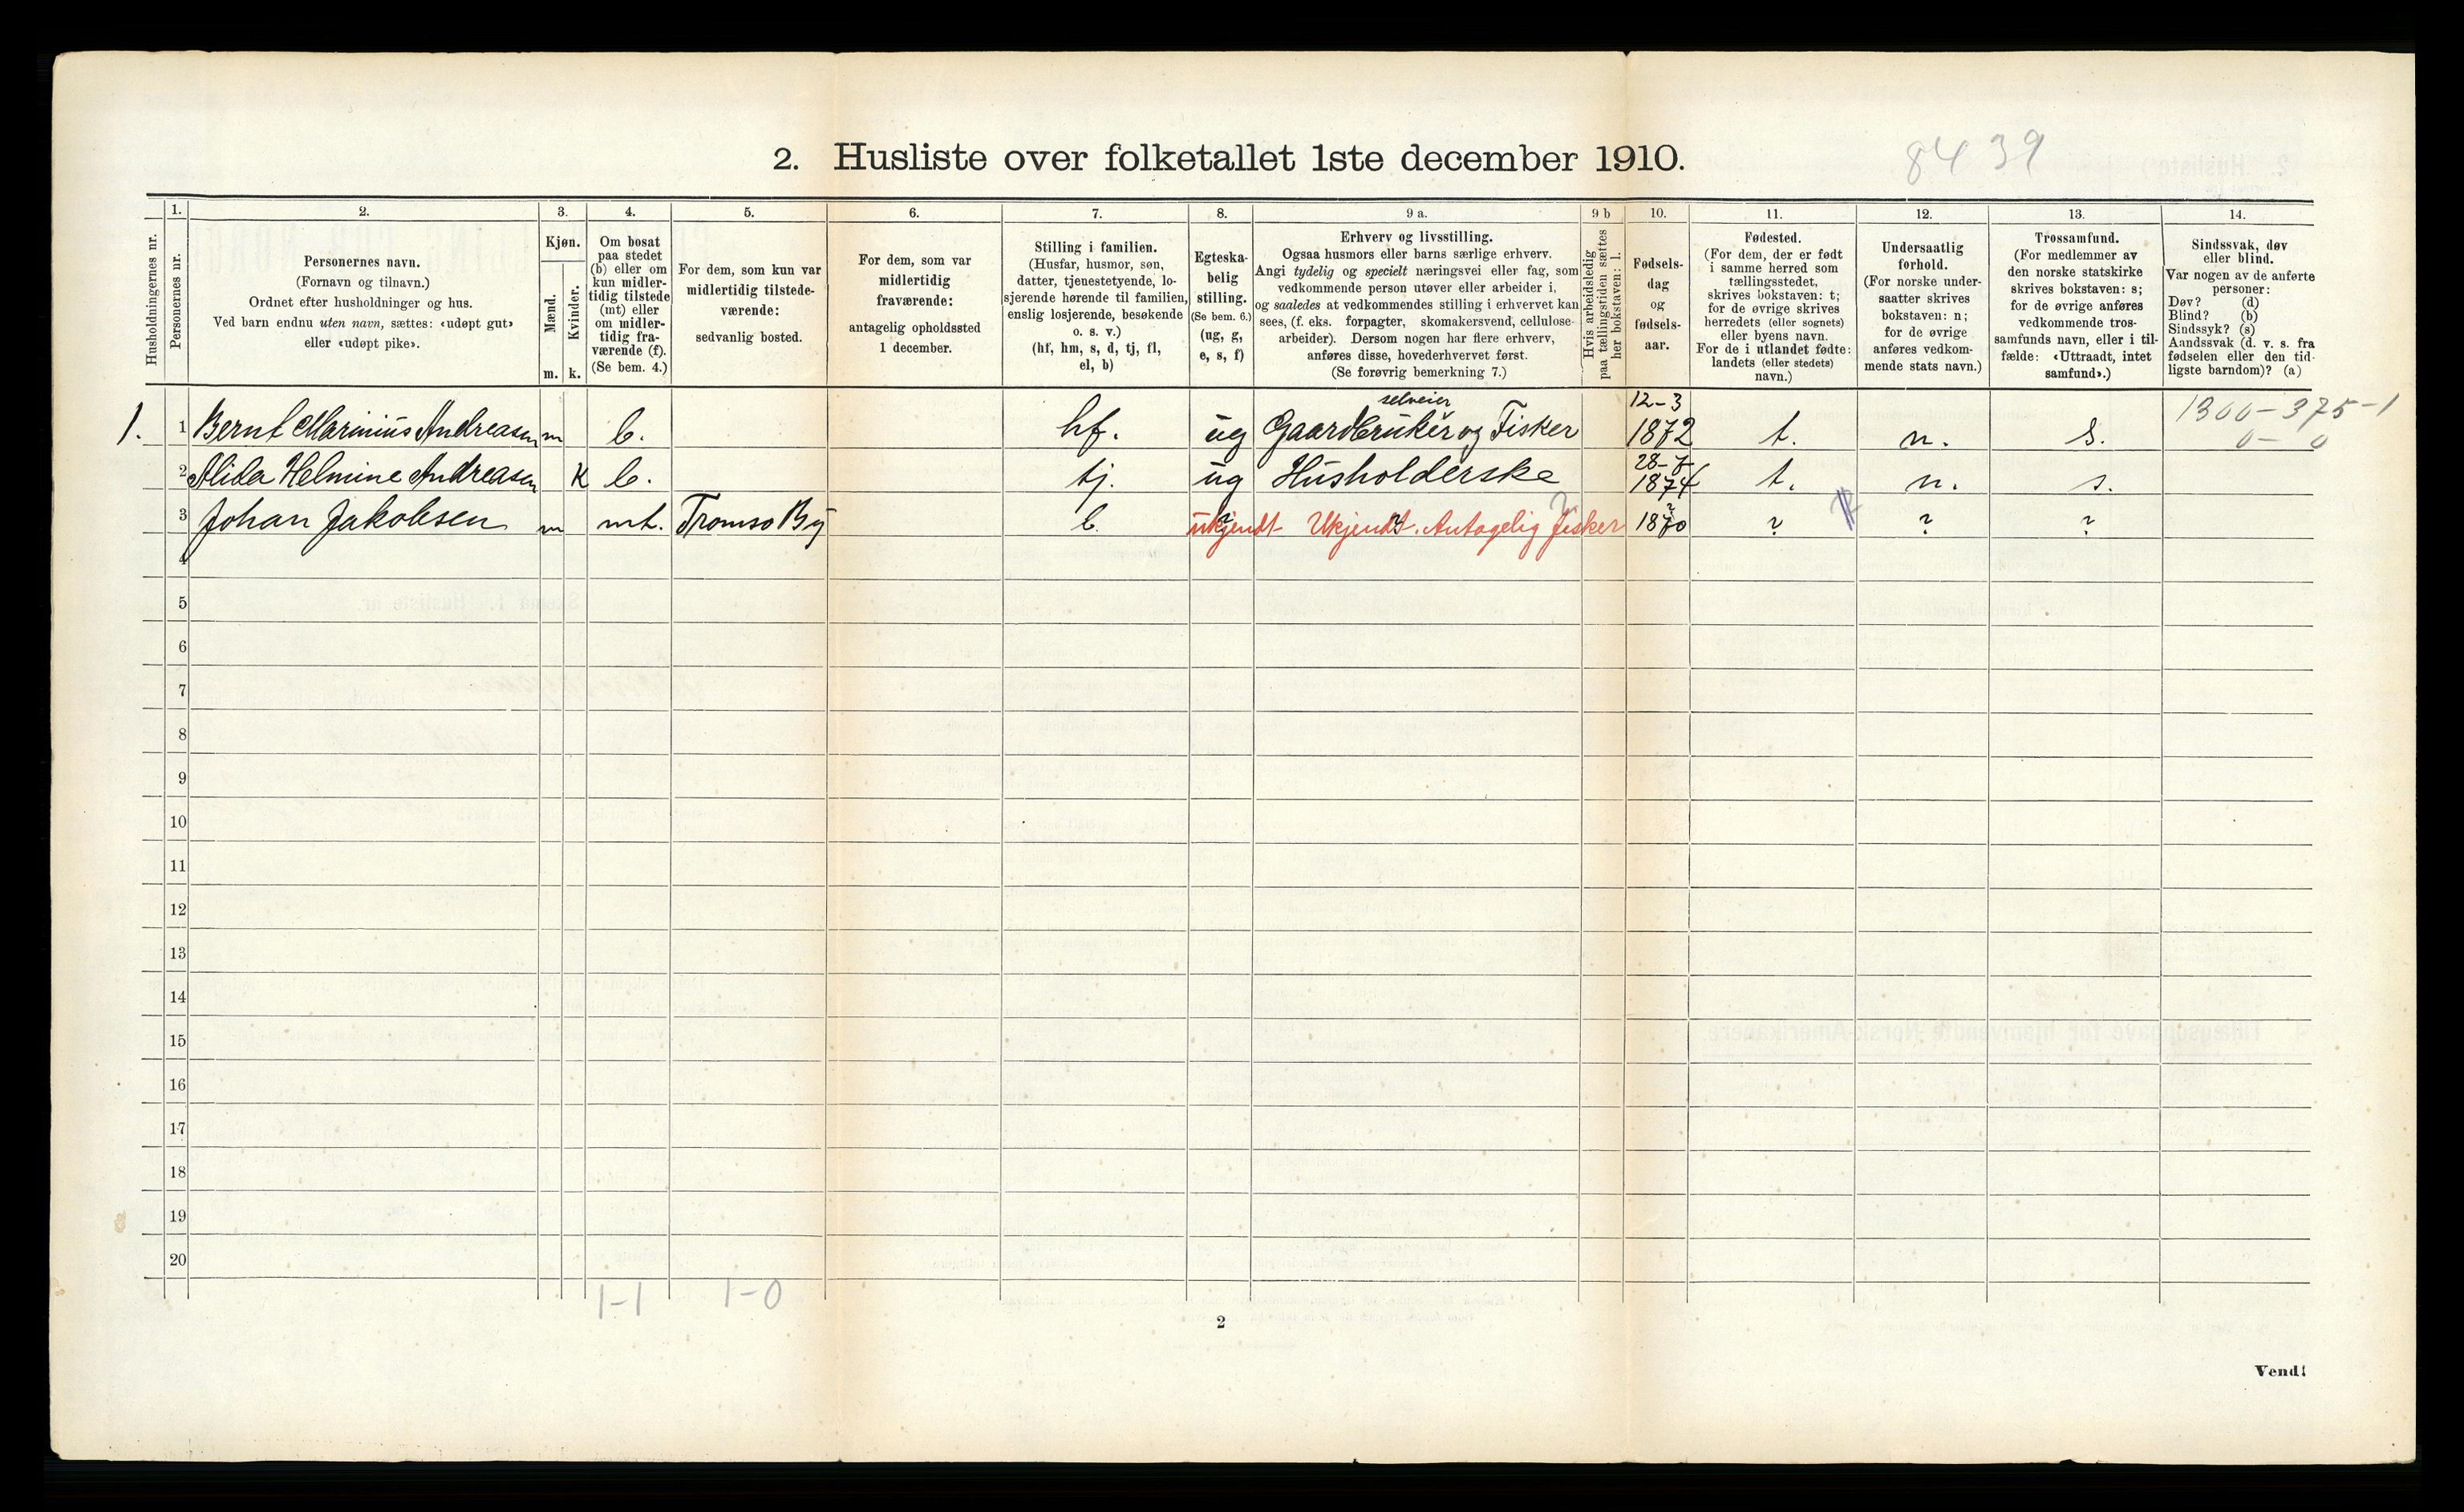 2. Husliste over folketallet 1ste december 1910.
8439
Husholdningernes nr.
1.
Personernes nr.
2.
Personernes navn.
(Fornavn og tilnavn.)
Ordnet efter husholdninger og hus.
Ved barn endnu uten navn, sættes: «udøpt gut»
eller «udøpt pike».
3.
Kjøn.
Mænd.
Kvinder.
m. k.
4.
Om bosat
paa stedet
(b) eller om
kun midler-
tidig tilstede
(mt) eller
om midler-
tidig fra-
værende (f).
(Se bem. 4.)
5.
For dem, som kun var
midlertidig tilstede-
værende:
sedvanlig bosted.
6.
For dem, som var
midlertidig
fraværende:
antagelig opholdssted
1 december.
7.
Stilling i familien.
(Husfar, husmor, søn,
datter, tjenestetyende, lo-
sjerende hørende til familien,
enslig losjerende, besøkende
o. s. v.)
(hf, hm, s, d, tj, fl,
el, b)
8.
Egteska-
belig
stilling.
(Se bem. 6.)
(ug, g,
e, s, f)
9 a.
Erhverv og livsstilling.
Ogsaa husmors eller barns særlige erhverv.
Angi tydelig og specielt næringsvei eller fag, som
vedkommende person utøver eller arbeider i,
og saaledes at vedkommendes stilling i erhvervet kan
sees, (f. eks. forpagter, skomakersvend, cellulose-
arbeider). Dersom nogen har flere erhverv,
anføres disse, hovederhvervet først.
(Se forøvrig bemerkning 7.)
9 b
Hvis arbeidsledig
paa tællingstiden sættes
her bokstaven: l.
10.
Fødsels-
dag
og
fødsels-
aar.
11.
Fødested.
(For dem, der er født
i samme herred som
tællingsstedet,
skrives bokstaven: t;
for de øvrige skrives
herredets (eller sognets)
eller byens navn.
For de i utlandet fødte:
landets (eller stedets)
navn.)
12.
Undersaatlig
forhold.
(For norske under-
saatter skrives
bokstaven: n;
for de øvrige
anføres vedkom-
mende stats navn.)
13.
Trossamfund.
(For medlemmer av
den norske statskirke
skrives bokstaven: s;
for de øvrige anføres
vedkommende tros-
samfunds navn, eller i til-
fælde: «Uttraadt, intet
samfund».)
14.
Sindssvak, døv
eller blind.
Var nogen av de anførte
personer:
Døv? (d)
Blind? (b)
Sindssyk? (s)
Aandssvak (d. v. s. fra
fødselen eller den tid-
ligste barndom)? (a)
selveier 12-3 1300-375-1
1. 1 Bernt Marinius Andreasen m b. hf. ug Gaardbruker og Fisker 1872 t. n. s. 0-0
28-7
2 Alida Helmine Andreasen k b. tj. ug Husholderske 1874 t. n. s.
3 Johan Jakobsen m mt. Tromsø By b. ukjendt Ukjendt. Antagelig fisker 1870 ? ? ?
4
5
6
7
8
9
10
11
12
13
14
15
16
17
18
19
20
1-1 1-0
2
Vend!